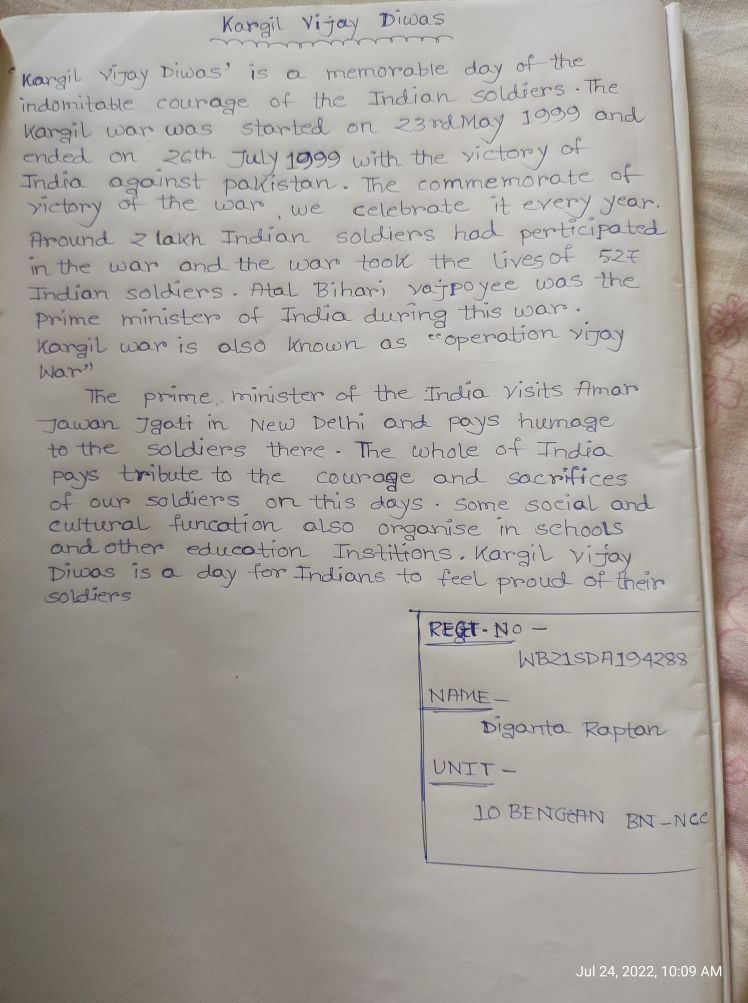 Kargil Vijay Diwas
"Kargil Vijay Diwas' is a memorable day of the
indomitable courage of the Indian soldiers. The
Kargil war was started on 23rd May 1999 and
ended on 26th July 1999 with the victory of
India against pakistan. The commemorate of
victory of the war, we celebrate it every year.
Around 2 lakh Indian soldiers had perticipated
in the war and the war took the lives of 527
Indian soldiers. Atal Bihari vajpoyee was the
prime minister of India during this war.
Kargil war is also known as "operation vijay
War"
The prime minister of the India visits Amar
Jawan Jgati in New Delhi and pays humage
to the soldiers there. The whole of India
pays tribute to the courage and sacrifices
of our soldiers on this days. some social and
cultural funcation also organise in schools
and other education Institions. Kargil vijay
Diwas is a day for Indians to feel proud of their
soldiers
REGT. NO -
WB21SDA194288
NAME -
Diganta Raptan
UNIT -
10 BENGAN BN-NCC
Jul 24, 2022, 10:09 AM